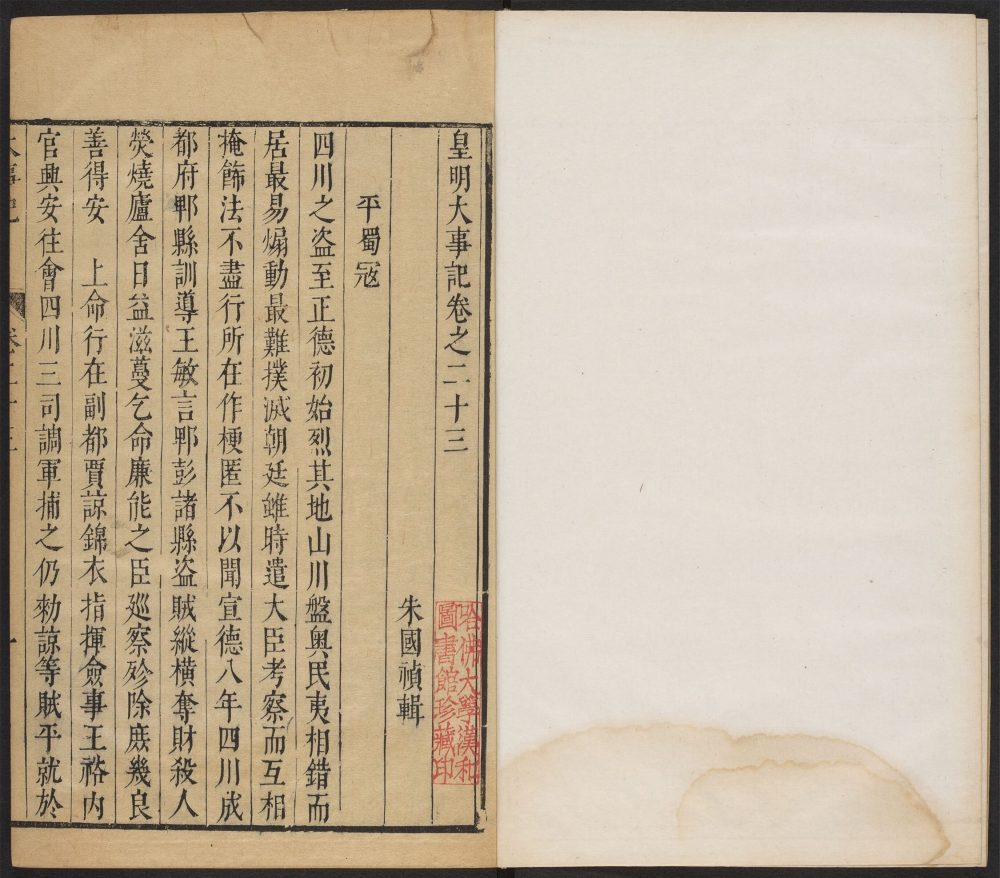 皇明大事記卷之二十三
朱國禎輯
哈佛大學漢和
圖書館珍藏印
平蜀寇
四川之盗至正德初始烈其地山川盤奥民夷相錯而
居最易煽動最難撲滅朝廷雖時遣大臣考察而互相
掩飾法不盡行所在作梗匿不以聞宣德八年四川成
都府郫縣訓導王敏言郫彭諸縣盗賊縱横奪財殺人
焚燒廬舍日益滋蔓乞命廉能之臣廵察殄除庻幾良
善得安　上命行在副都賈諒錦衣指揮僉事王裕内
官興安往會四川三司調軍捕之仍勑諒等賊平就於